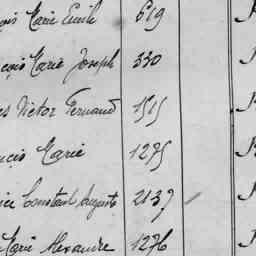 Marie Emile 619
Marie Joseph 330
Victor Fernand 1515
Marie 1275
Constant Auguste 2137
Marie Alexandre 1276